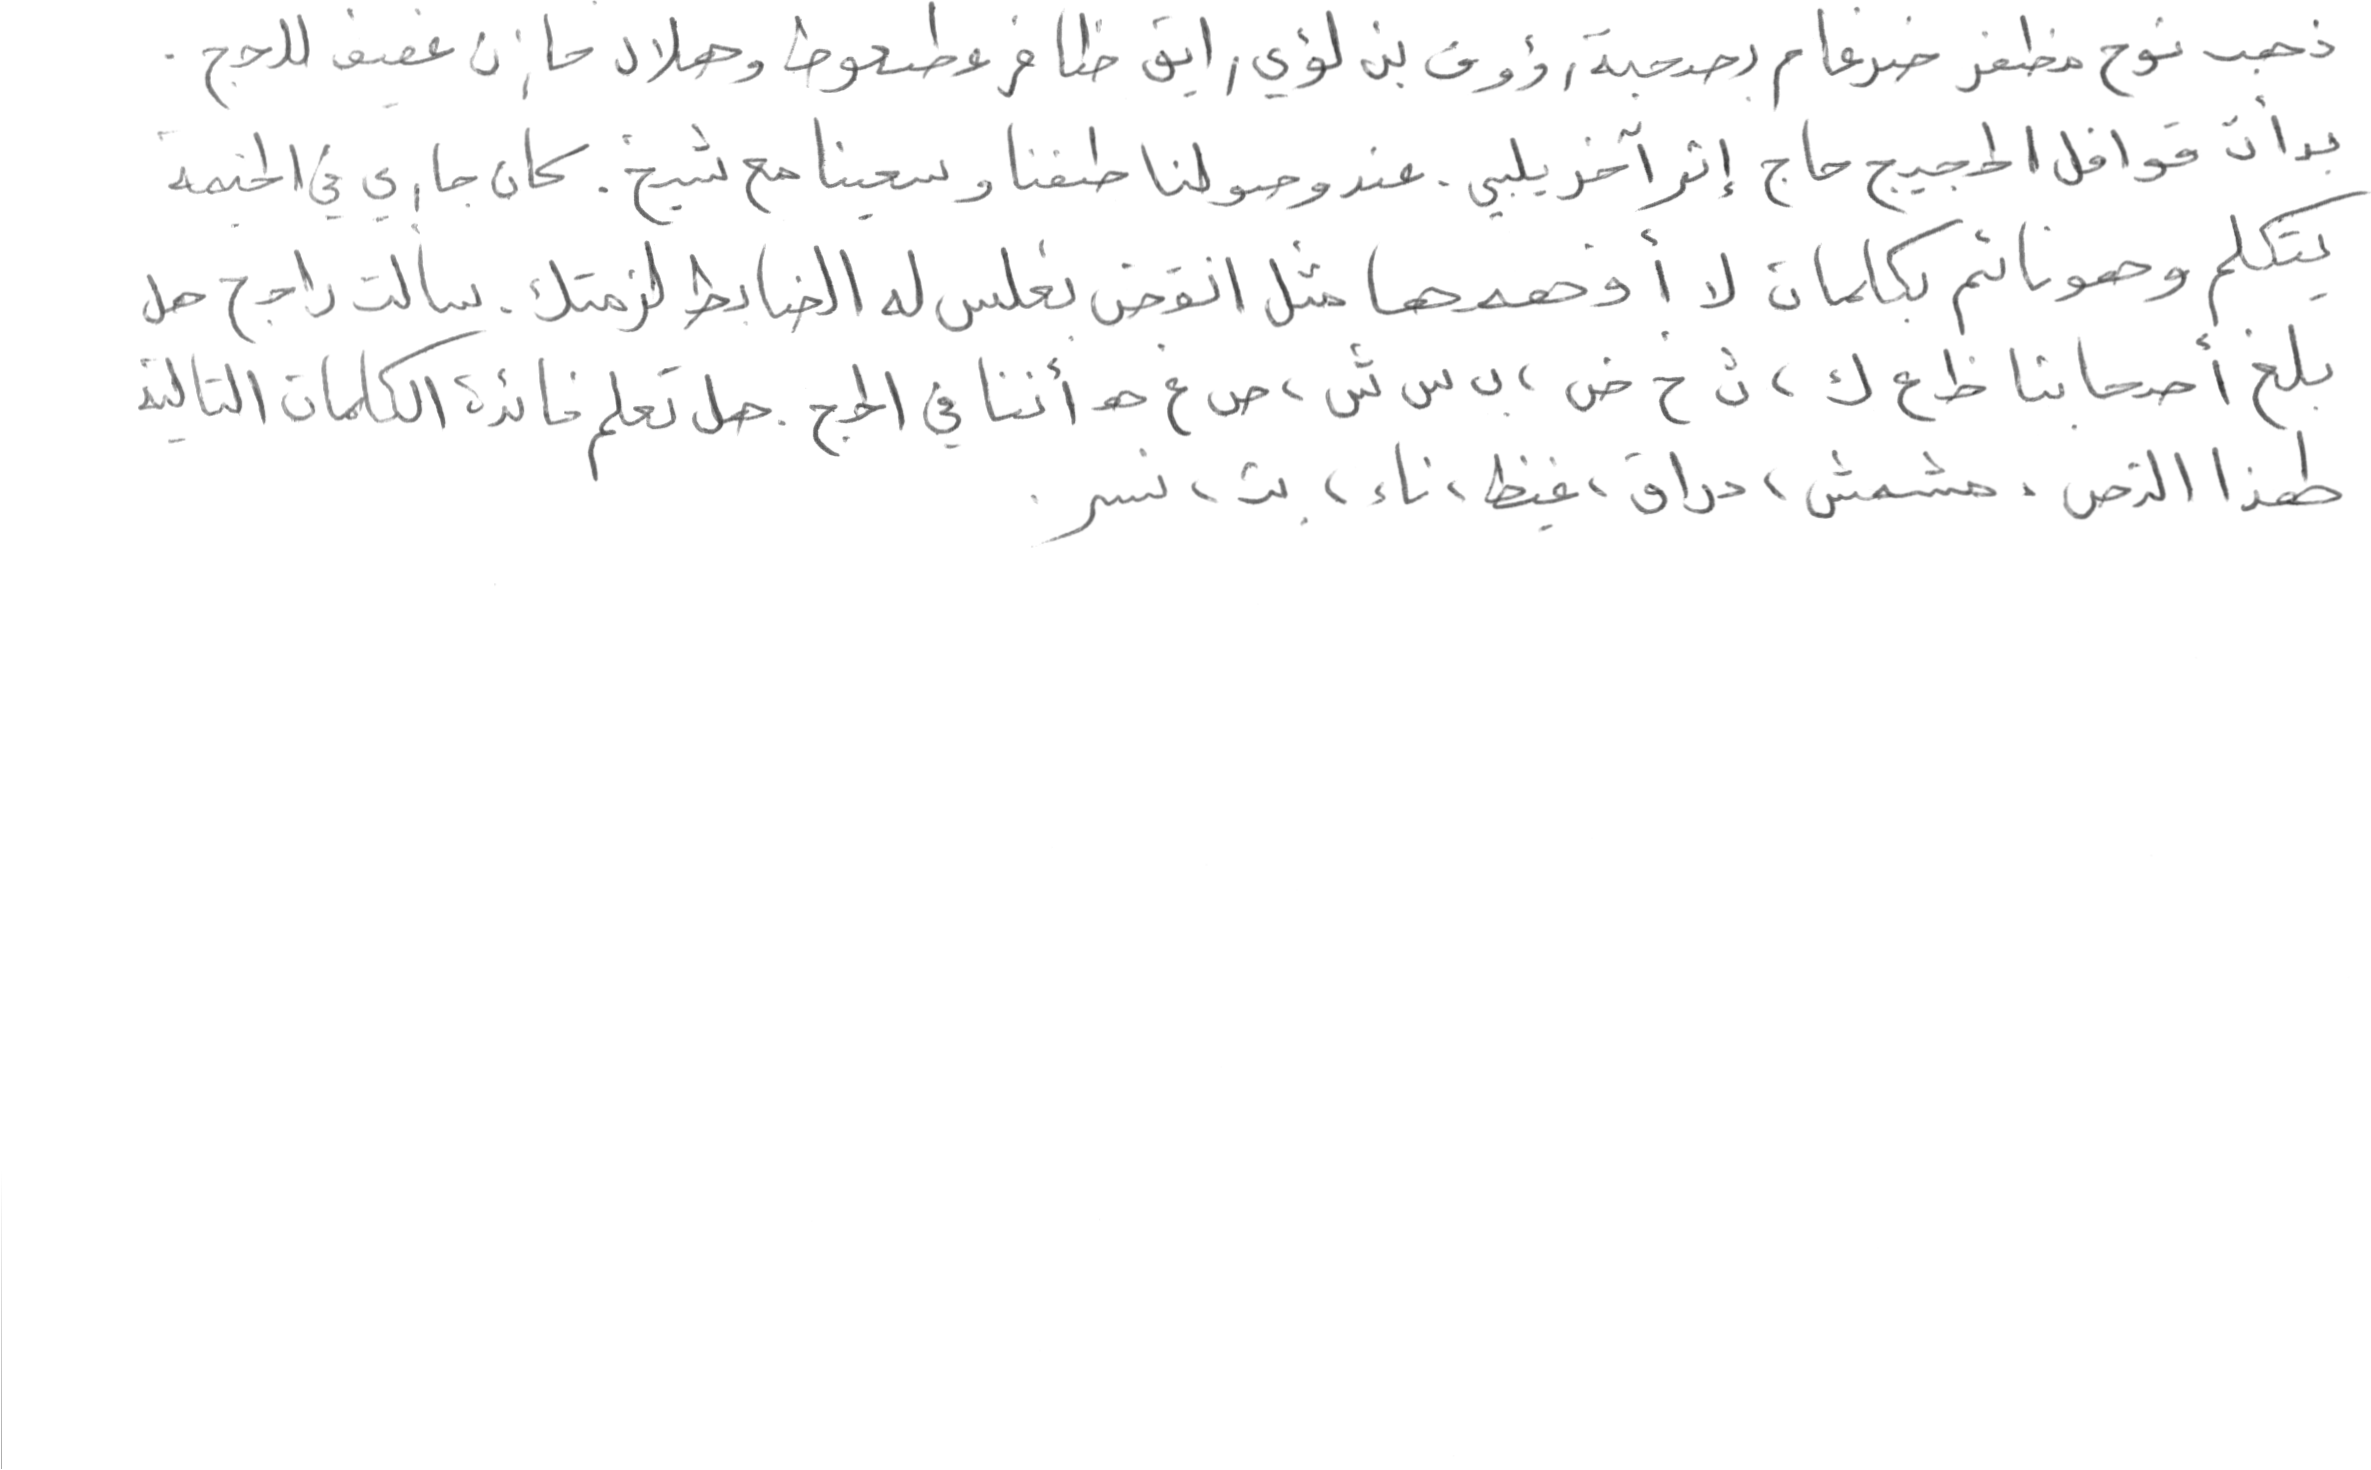 ذهب نوح مظفر ضرغام بصحبة رؤوف بن لؤي رايق ظافر عطعوط وهلال خازن عفيف للحج .
بدأت قوافل الحجيج حاج إثر آخر يلبي . عند وصولنا طفنا وسعينا مع شيخ . كان جاري في الخيمة
يتكلم وهو نائم بكلمات لا أفهمها مثل انقض تغلس له الضابط لزمتك . سألت راجح هل
بلغ أصحابنا ظ ع ك ، ث خ ض ، ب س ش ، ص غ هـ أننا في الحج . هل تعلم فائدة الكلمات التالية
لهذا النص . مشمش ، دراق ، غيظ ، ناء ، بث ، نسر .